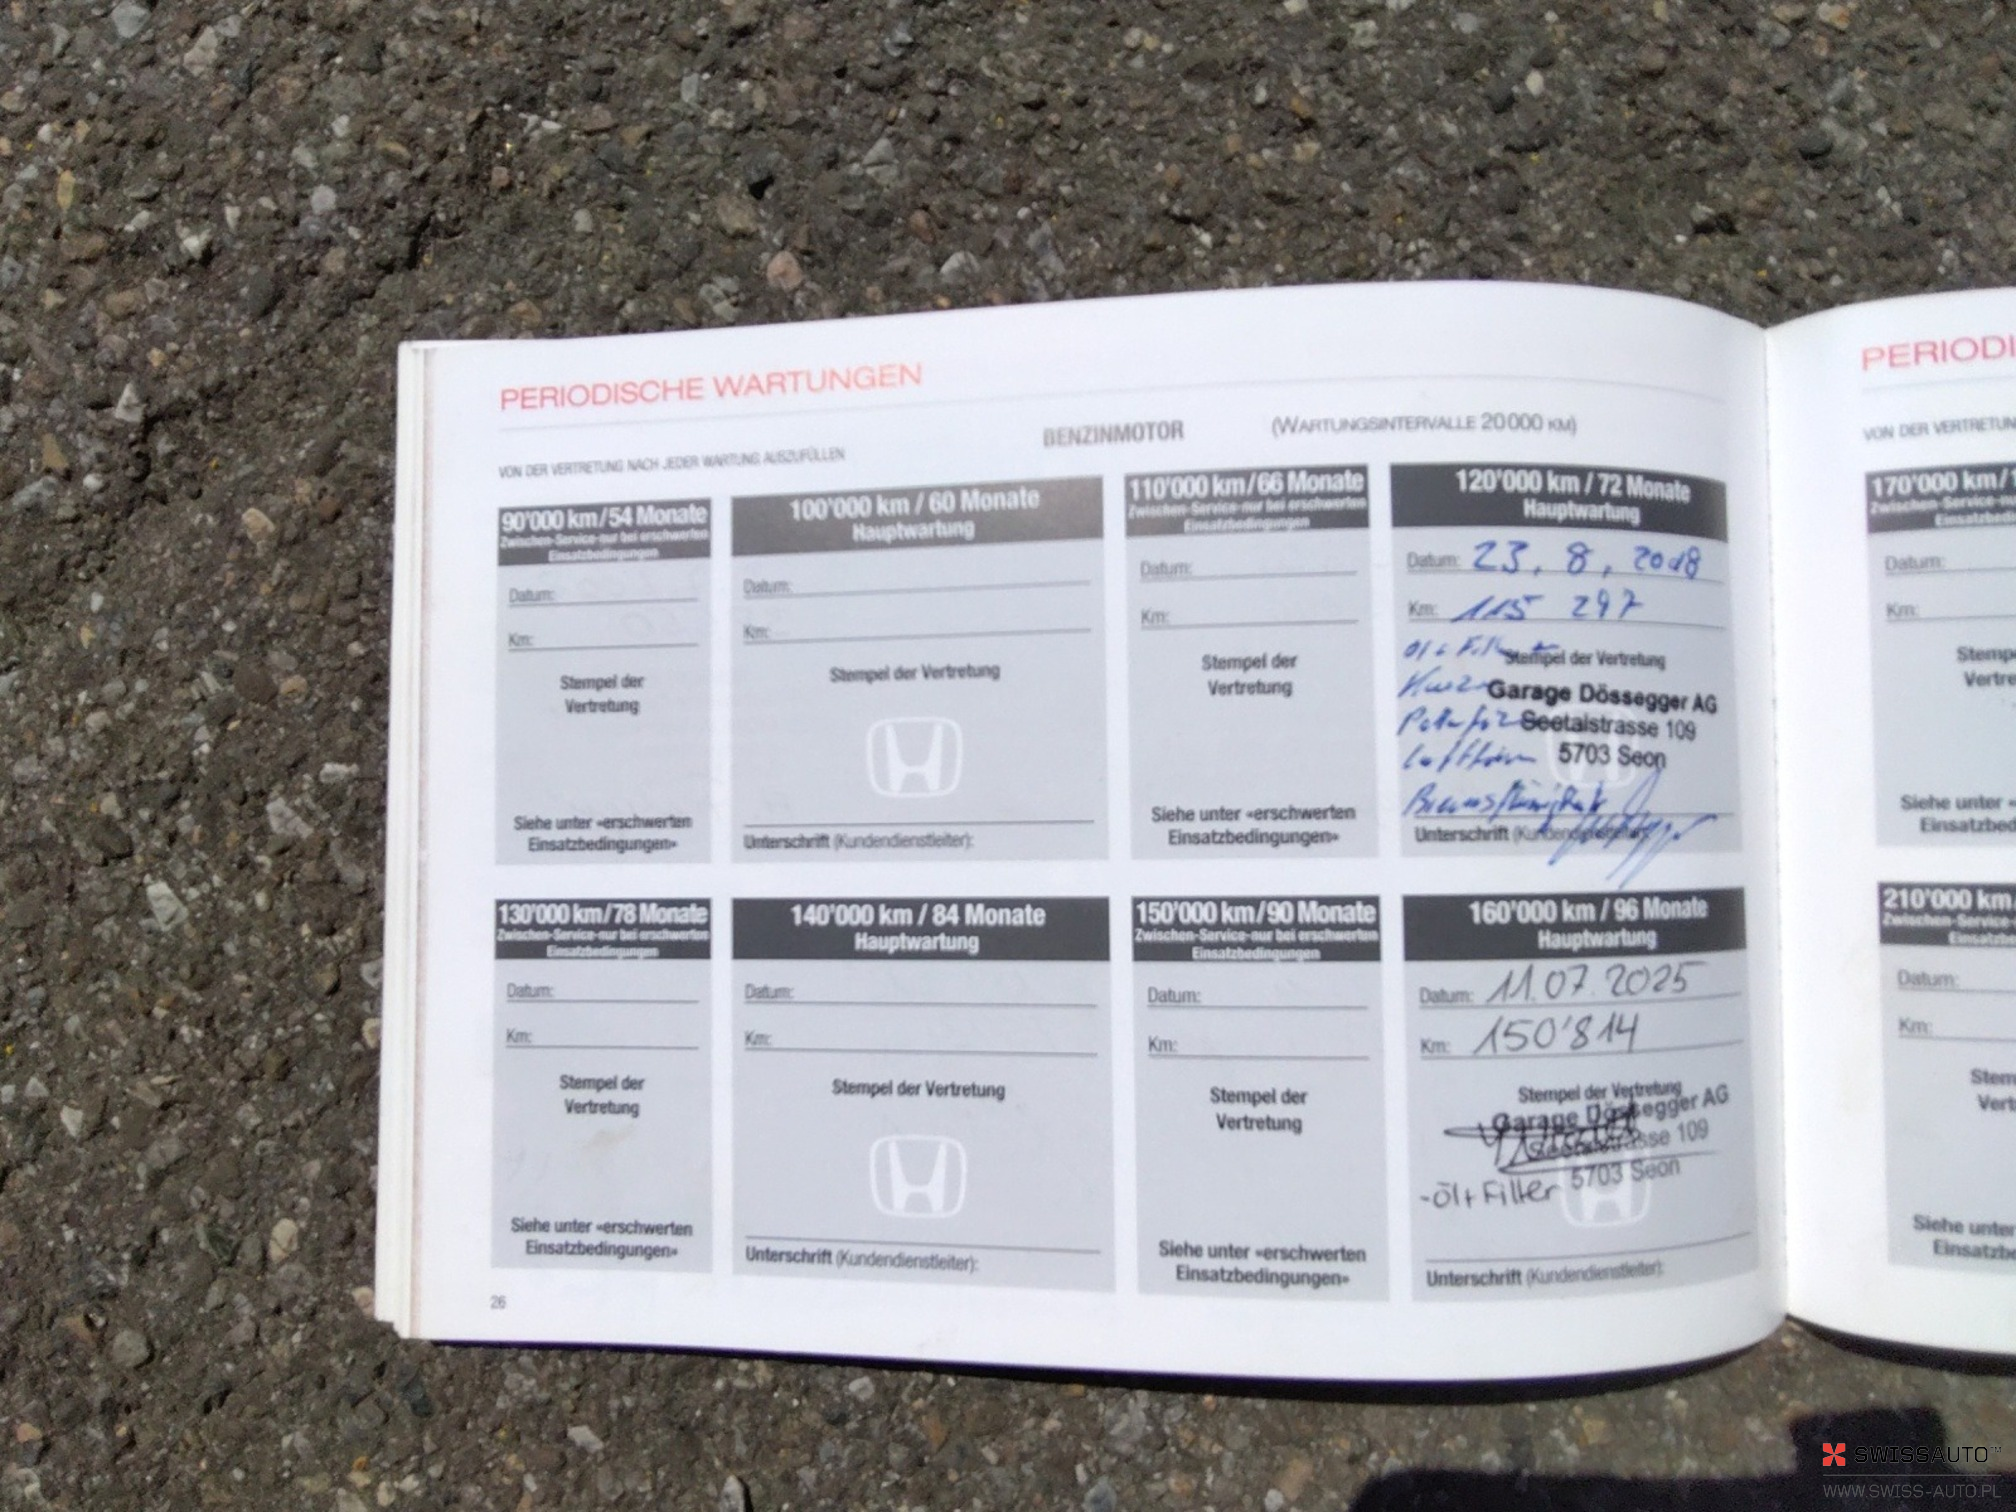 PERIODISCHE WARTUNGEN
VON DER VERTRETUNG NACH JEDER WARTUNG AUSZUFÜLLEN
BENZINMOTOR
(WARTUNGSINTERVALLE 20 000 KM)
90'000 km/54 Monate
Zwischen-Service-nur bei erschwerten
Einsatzbedingungen
Datum:
Km:
Stempel der
Vertretung
Siehe unter «erschwerten
Einsatzbedingungen»
100'000 km / 60 Monate
Hauptwartung
Datum:
Km:
Stempel der Vertretung
Unterschrift (Kundendienstleiter):
110'000 km/66 Monate
Zwischen-Service-nur bei erschwerten
Einsatzbedingungen
Datum:
Km:
Stempel der
Vertretung
Siehe unter «erschwerten
Einsatzbedingungen»
120'000 km / 72 Monate
Hauptwartung
Datum: 23. 8. 2018
Km: 115 297
Stempel der Vertretung
Garage Dössegger AG
Seetalstrasse 109
5703 Seon
Unterschrift (Kundendienstleiter):
130'000 km/78 Monate
Zwischen-Service-nur bei erschwerten
Einsatzbedingungen
Datum:
Km:
Stempel der
Vertretung
Siehe unter «erschwerten
Einsatzbedingungen»
140'000 km / 84 Monate
Hauptwartung
Datum:
Km:
Stempel der Vertretung
Unterschrift (Kundendienstleiter):
150'000 km/90 Monate
Zwischen-Service-nur bei erschwerten
Einsatzbedingungen
Datum:
Km:
Stempel der
Vertretung
Siehe unter «erschwerten
Einsatzbedingungen»
160'000 km / 96 Monate
Hauptwartung
Datum: 11.07.2025
Km: 150'814
Stempel der Vertretung
Garage Dössegger AG
Seetalstrasse 109
5703 Seon
-Öl+Filter
Unterschrift (Kundendienstleiter):
26
PERIODI
VON DER VERTRETUN
170'000 km/1
Zwischen-Service-
Einsatzb
Datum:
Km:
Stemp
Vertre
Siehe unter «
Einsatzbed
210'000 km
Zwischen-Service-
Einsatz
Datum:
Km:
Stem
Vert
Siehe unter
Einsatzbe
SWISSAUTO™
WWW.SWISS-AUTO.PL